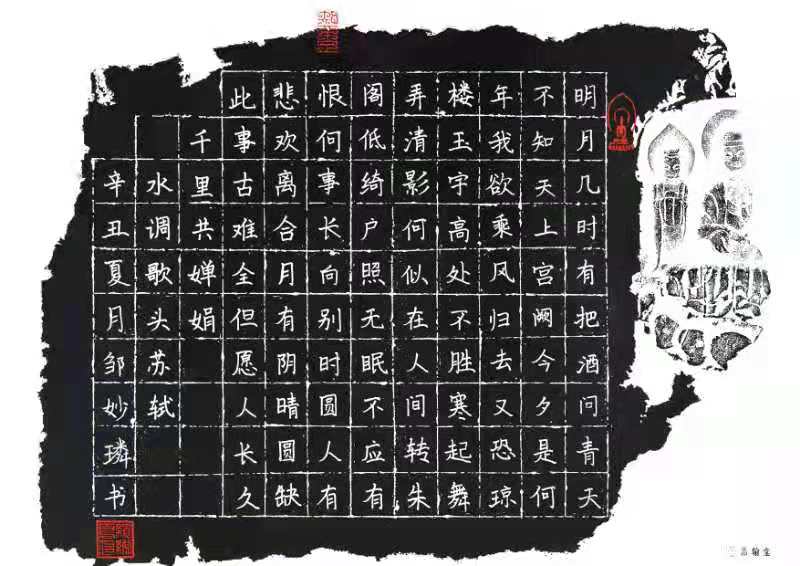 明月几时有把酒问青天
不知天上宫阙今夕是何
年我欲乘风归去又恐琼
楼玉宇高处不胜寒起舞
弄清影何似在人间转朱
阁低绮户照无眠不应有
恨何事长向别时圆人有
悲欢离合月有阴晴圆缺
此事古难全但愿人长久
千里共婵娟
水调歌头苏轼
辛丑夏月邹妙璘书